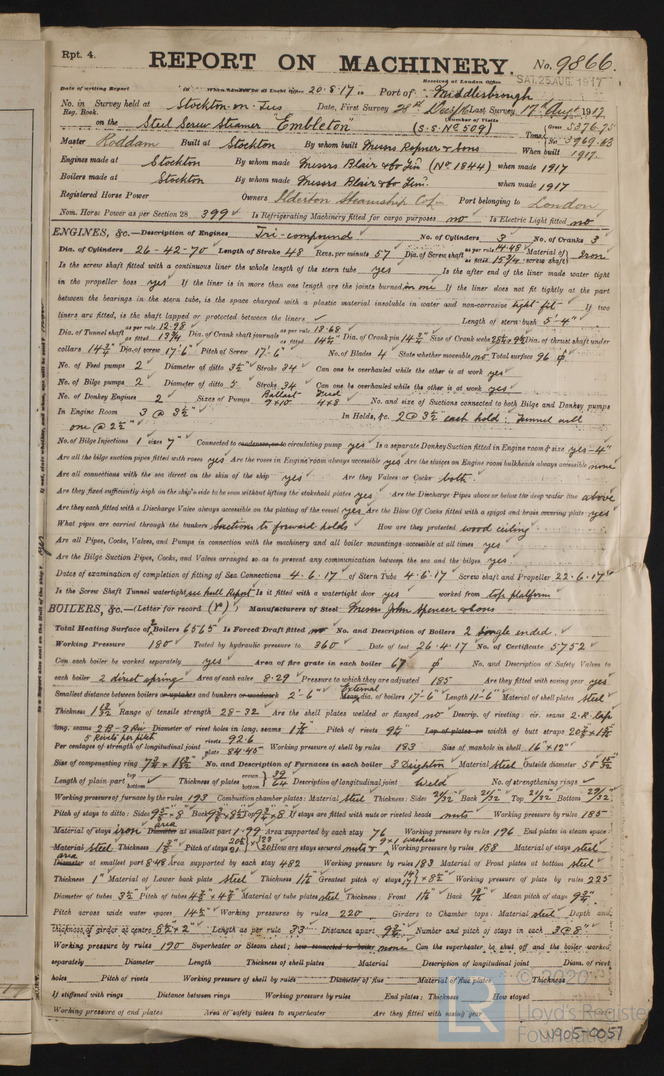 Rpt. 4.
REPORT ON MACHINERY. No. 9866.
Received at London Office SAT. 25 AUG. 1917
Date of writing Report 20.8.17 Port of Middlesbrough
No. in Reg. Book. Survey held at Stockton-on-Tees Date, First Survey Last Survey 17th Augt 1917
(Number of Visits
on the Steel Screw Steamer "Embleton" (S.S. No 509) Tons { Gross 5376.75 Net 3969.63
Master Roddam Built at Stockton By whom built Messrs Ropner & Sons When built 1917.
Engines made at Stockton By whom made Messrs Blair & Co Lim (No 1844) when made 1917
Boilers made at Stockton By whom made Messrs Blair & Co Lim. when made 1917
Registered Horse Power Owners Steamship Co Port belonging to London
Nom. Horse Power as per Section 28 399 Is Refrigerating Machinery fitted for cargo purposes no Is Electric Light fitted no
ENGINES, &c.—Description of Engines Tri-compound No. of Cylinders 3 No. of Cranks 3
Dia. of Cylinders 26-42-70 Length of Stroke 48 Revs. per minute 57 Dia. of Screw shaft as per rule 14.48 as fitted 15 3/4 Material of screw shaft Iron
Is the screw shaft fitted with a continuous liner the whole length of the stern tube yes Is the after end of the liner made water tight
in the propeller boss yes If the liner is in more than one length are the joints burned in one If the liner does not fit tightly at the part
between the bearings in the stern tube, is the space charged with a plastic material insoluble in water and non-corrosive tight fit If two
liners are fitted, is the shaft lapped or protected between the liners Length of stern bush 5'-4"
Dia. of Tunnel shaft as per rule 12.98 as fitted 13 3/4 Dia. of Crank shaft journals as per rule 13.68 as fitted 14 1/4 Dia. of Crank pin 14 3/4 Size of Crank webs Dia. of thrust shaft under
collars 14 3/4 Dia. of screw 17'-6" Pitch of Screw 17'-6" No. of Blades 4 State whether moveable no Total surface 96
No. of Feed pumps 2 Diameter of ditto 3 1/2 Stroke 34 Can one be overhauled while the other is at work yes
No. of Bilge pumps 2 Diameter of ditto 5 Stroke 34 Can one be overhauled while the other is at work yes
No. of Donkey Engines 2 Sizes of Pumps Ballast 9x10 Feed 4x8 No. and size of Suctions connected to both Bilge and Donkey pumps
In Engine Room 3 @ 3 1/2" In Holds, &c. 2 @ 3 1/2" each hold: Tunnel well
one @ 2 1/2"
No. of Bilge Injections 1 sizes 7" Connected to condenser, or to circulating pump yes Is a separate Donkey Suction fitted in Engine room & size yes - 4"
Are all the bilge suction pipes fitted with roses yes Are the roses in Engine room always accessible yes Are the sluices on Engine room bulkheads always accessible none
Are all connections with the sea direct on the skin of the ship yes Are they Valves or Cocks both
Are they fixed sufficiently high on the ship's side to be seen without lifting the stokehold plates yes Are the Discharge Pipes above or below the deep water line above
Are they each fitted with a Discharge Valve always accessible on the plating of the vessel yes Are the Blow Off Cocks fitted with a spigot and brass covering plate yes
What pipes are carried through the bunkers Suctions to forward holds How are they protected wood ceiling
Are all Pipes, Cocks, Valves, and Pumps in connection with the machinery and all boiler mountings accessible at all times yes
Are the Bilge Suction Pipes, Cocks, and Valves arranged so as to prevent any communication between the sea and the bilges yes
Dates of examination of completion of fitting of Sea Connections 4.6.17 of Stern Tube 4.6.17 Screw shaft and Propeller 22.6.17
Is the Screw Shaft Tunnel watertight see hull Report Is it fitted with a watertight door yes worked from top platform
BOILERS, &c.—(Letter for record (r)) Manufacturers of Steel Messrs John Spencer & Sons
Total Heating Surface of 2 Boilers 6565 Is Forced Draft fitted no No. and Description of Boilers 2 Single ended.
Working Pressure 180 Tested by hydraulic pressure to 360 Date of test 26.4.17 No. of Certificate 5752
Can each boiler be worked separately yes Area of fire grate in each boiler 67 No. and Description of Safety Valves to
each boiler 2 direct spring Area of each valve 8.29 Pressure to which they are adjusted 185 Are they fitted with easing gear yes
Smallest distance between boilers or uptakes and bunkers or woodwork 2'-6" External Mean dia. of boilers 17'-6" Length 11'-6" Material of shell plates steel
Thickness Range of tensile strength 28-32 Are the shell plates welded or flanged no Descrip. of riveting: cir. seams 2.R. lap
long. seams Diameter of rivet holes in long. seams Pitch of rivets Lap of plates or width of butt straps
5 Rivets per pitch
Per centages of strength of longitudinal joint rivets 92.6 plate 84.45 Working pressure of shell by rules 183 Size of manhole in shell 16" x 12"
Size of compensating ring No. and Description of Furnaces in each boiler 3 Deighton Material steel Outside diameter
Length of plain part top bottom Thickness of plates crown bottom 39/64 Description of longitudinal joint weld No. of strengthening rings
Working pressure of furnace by the rules 193 Combustion chamber plates: Material steel Thickness: Sides 21/32 Back 21/32 Top 21/32 Bottom 29/32
Pitch of stays to ditto: Sides Back Top If stays are fitted with nuts or riveted heads nuts Working pressure by rules 185
Material of stays iron area Diameter at smallest part 1.99 Area supported by each stay 76 Working pressure by rules 196 End plates in steam space:
Material steel Thickness Pitch of stays How are stays secured nuts & washers Working pressure by rules 188 Material of stays steel
area Diameter at smallest part 8.48 Area supported by each stay 482 Working pressure by rules 183 Material of Front plates at bottom steel
Thickness 1" Material of Lower back plate steel Thickness Greatest pitch of stays Working pressure of plate by rules 225
Diameter of tubes 3 1/2 Pitch of tubes Material of tube plates steel Thickness: Front Back Mean pitch of stays
Pitch across wide water spaces 14 1/2" Working pressures by rules 220 Girders to Chamber tops: Material steel Depth and
thickness of girder at centre 8 1/2 x 2" Length as per rule 33" Distance apart Number and pitch of stays in each 3 @ 8"
Working pressure by rules 190 Superheater or Steam chest; how connected to boiler none Can the superheater be shut off and the boiler worked
separately Diameter Length Thickness of shell plates Material Description of longitudinal joint Diam. of rivet
holes Pitch of rivets Working pressure of shell by rules Diameter of flue Material of flue plates Thickness
If stiffened with rings Distance between rings Working pressure by rules End plates: Thickness How stayed
Working pressure of end plates Area of safety valves to superheater Are they fitted with easing gear
© 2020
LR
Lloyd's Register
Foundation
W905-0057